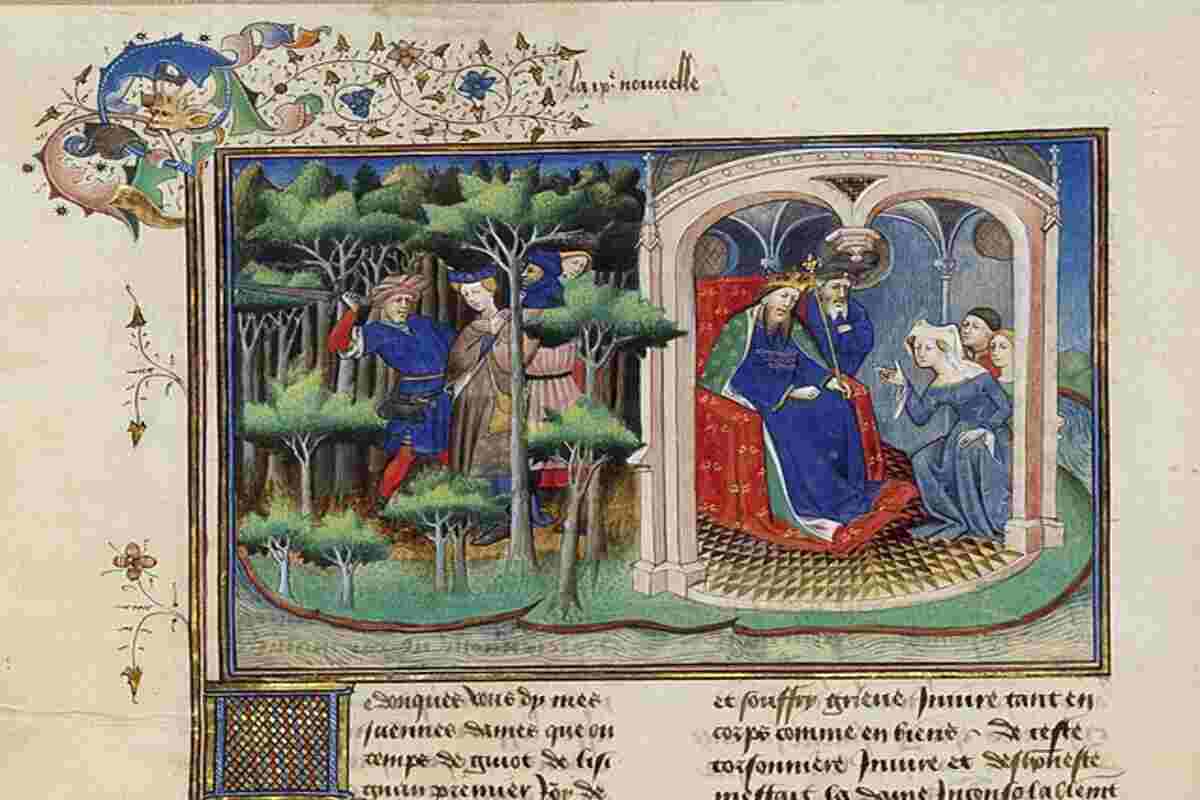 la ixe nouvelle
donques vous dy mes
juennes dames que ou
temps de guiot de lisi
gnan premier Roy de
et souffry grieue Iniure tant en
corps comme en biens De ceste
torsonniere Iniure et deshoneste
mesfait la dame Inconsolablemt